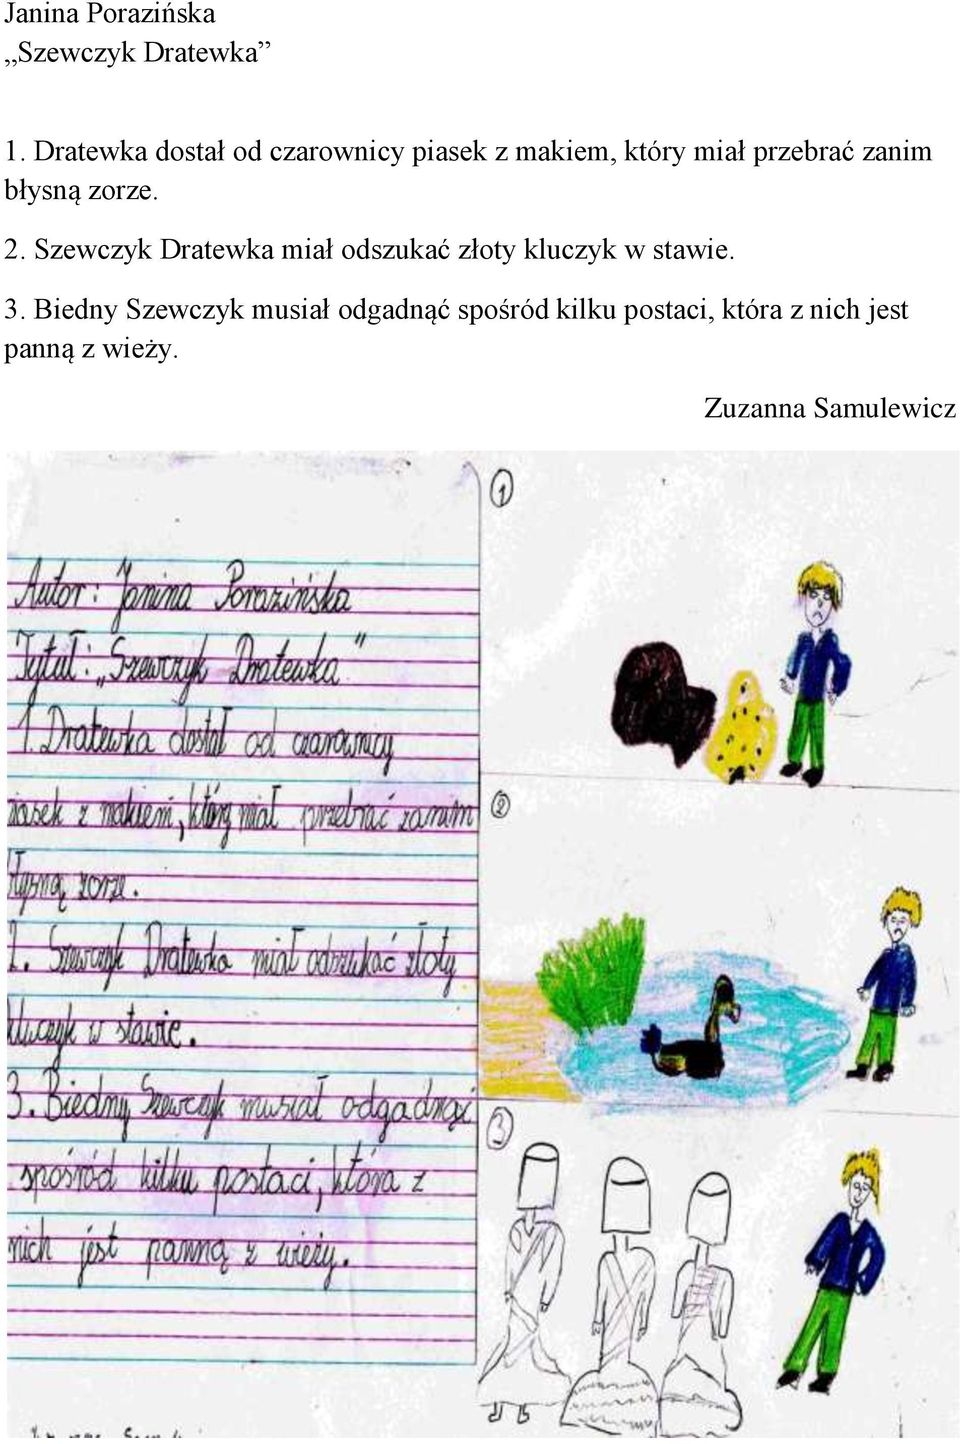 Janina Porazińska
„Szewczyk Dratewka”
1. Dratewka dostał od czarownicy piasek z makiem, który miał przebrać zanim
błysną zorze.
2. Szewczyk Dratewka miał odszukać złoty kluczyk w stawie.
3. Biedny Szewczyk musiał odgadnąć spośród kilku postaci, która z nich jest
panną z wieży.
Zuzanna Samulewicz
Autor: Janina Porazińska
Tytuł: „Szewczyk Dratewka”
1. Dratewka dostał od czarownicy
piasek z makiem, który miał przebrać zanim
błysną zorze.
2. Szewczyk Dratewka miał odszukać złoty
kluczyk w stawie.
3. Biedny Szewczyk musiał odgadnąć
spośród kilku postaci, która z
nich jest panną z wieży.
1
2
3